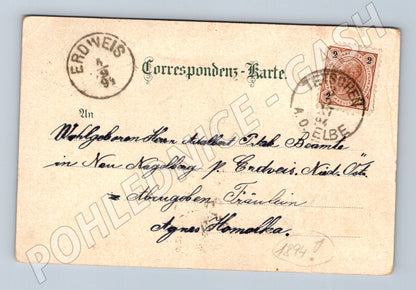 ERDWEIS
4
2
94
Correspondenz-Karte.
2 2
TETSCHEN
A. D. ELBE
An
Wohlgeboren Herrn Adalbert Ptak Beamte
in Neu Nagelberg p. Erdweis, Nied. Öst.
= Abzugeben Fräulein
Agnes Homolka.
1894 !
POHLEDNICE - CASH